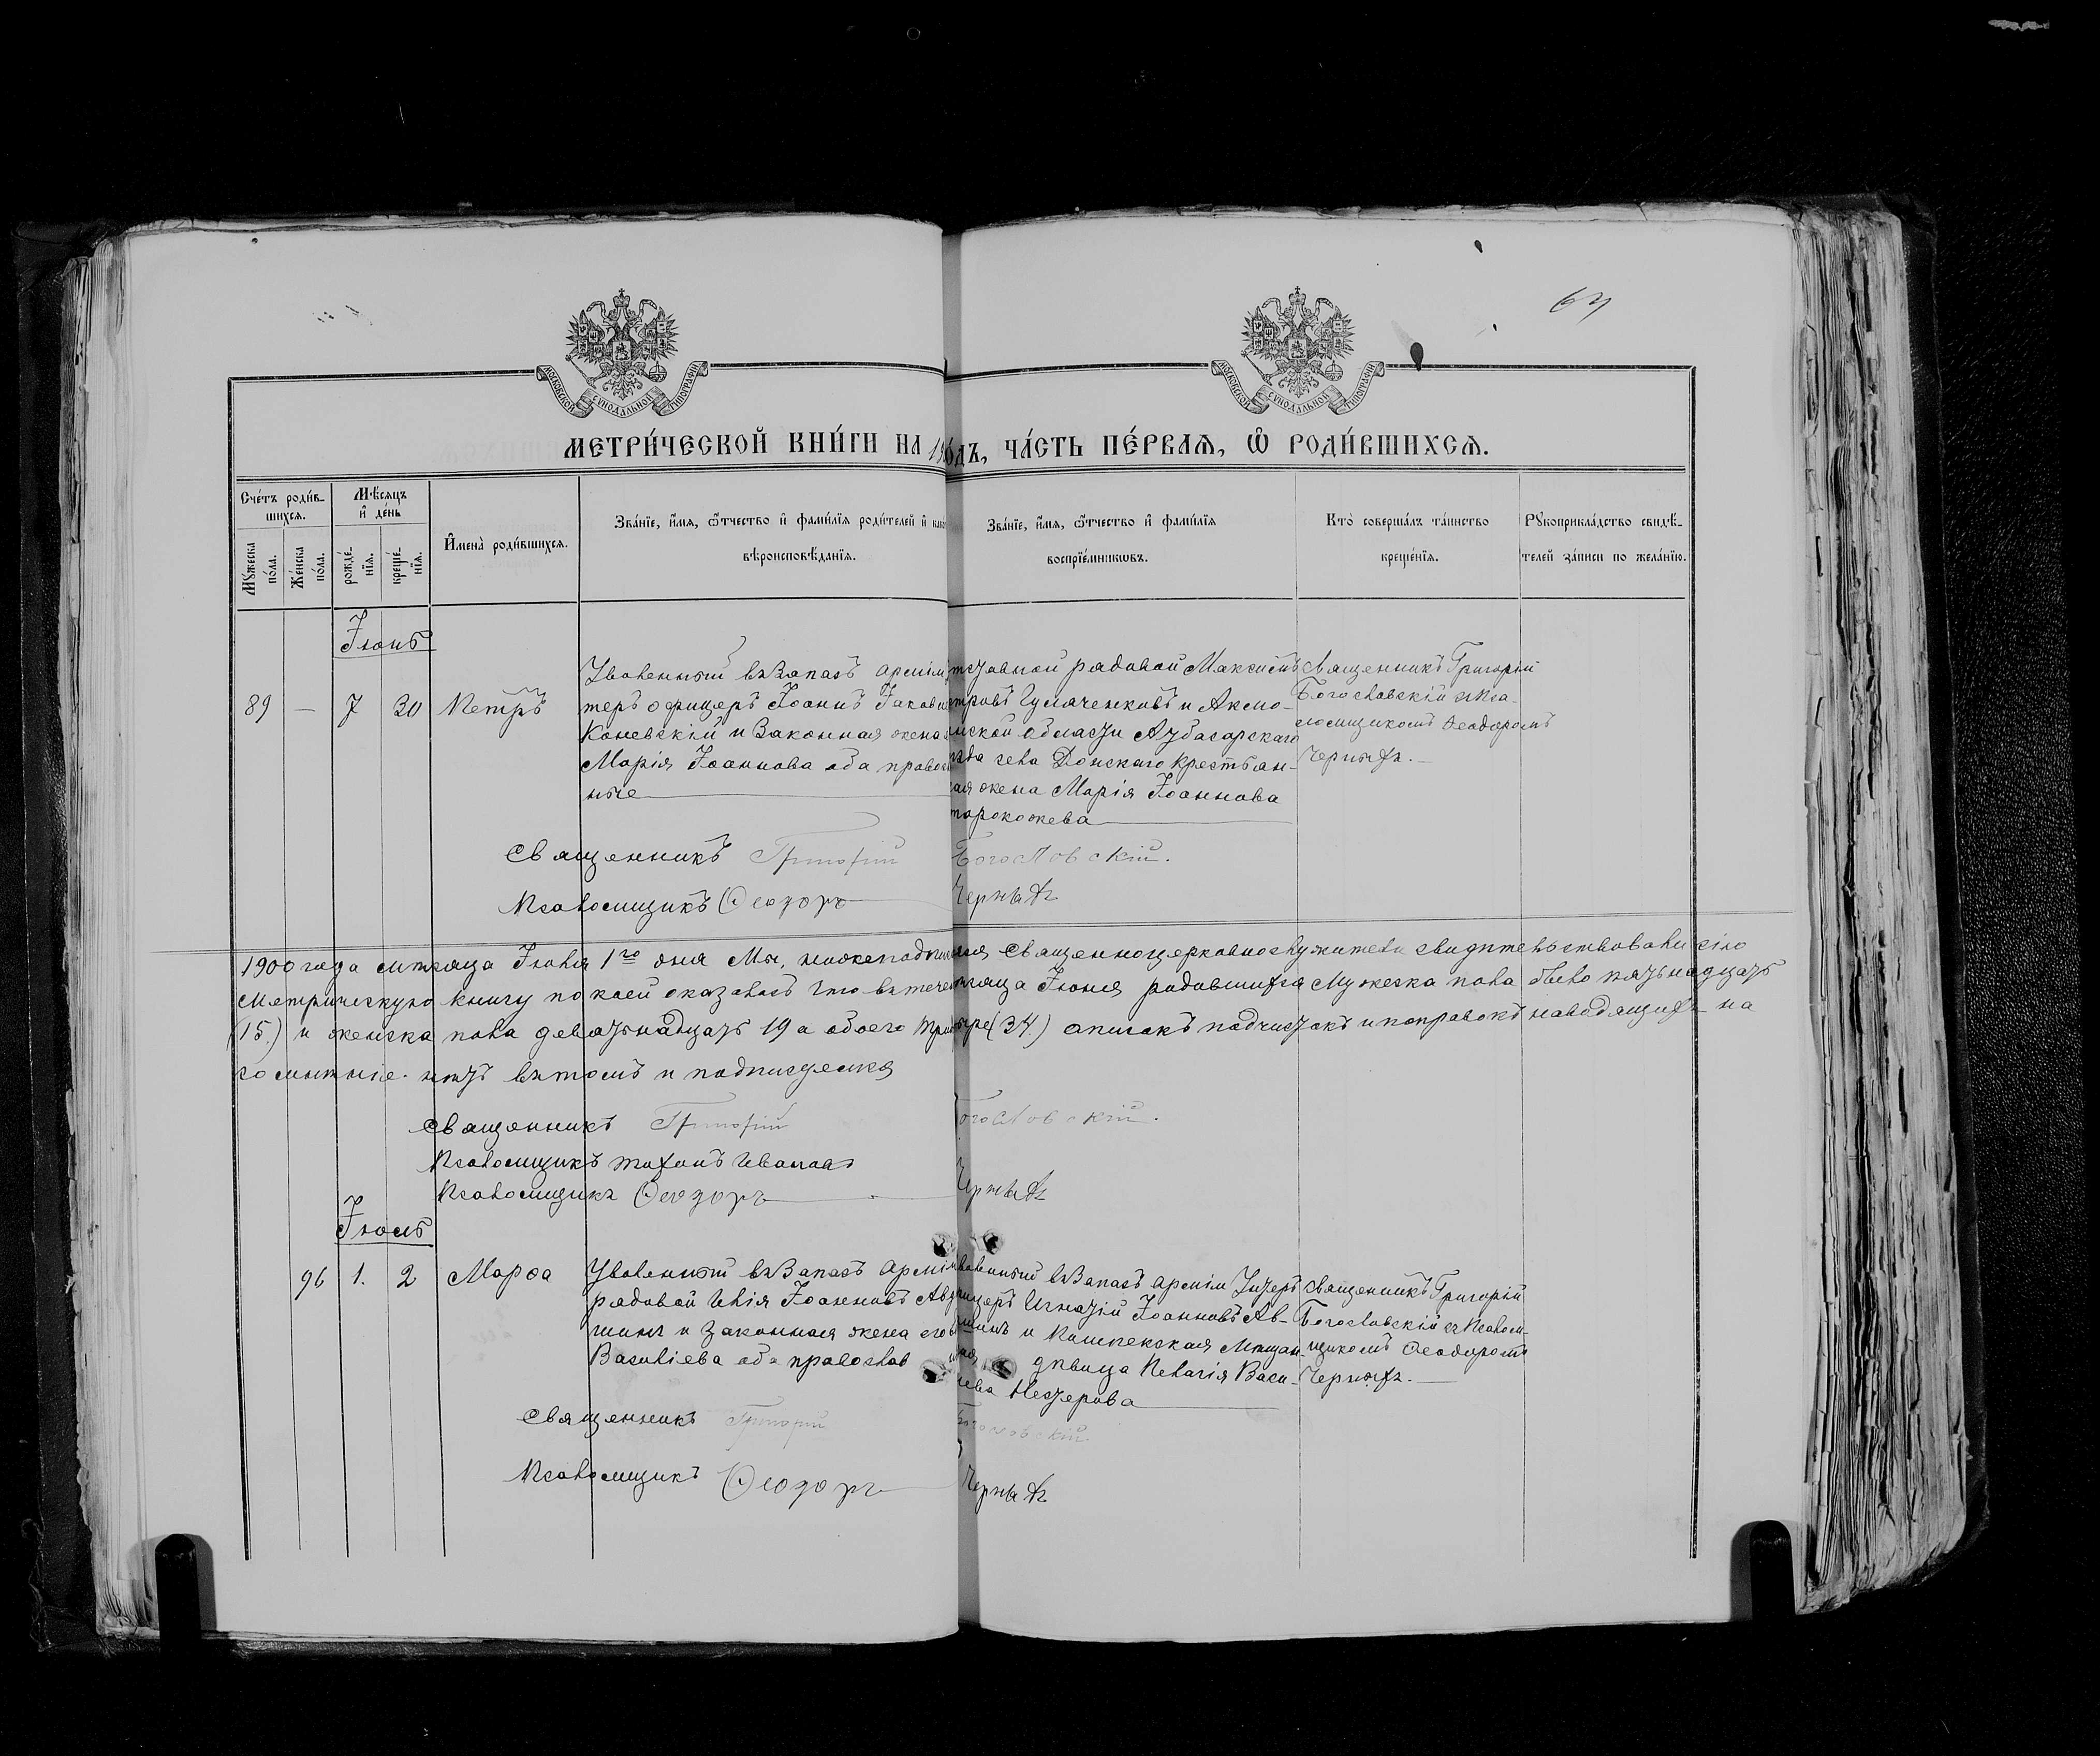 63
МОСКОВСКОЙ СѴНОДАЛЬНОЙ ТИПОГРАФІИ
МОСКОВСКОЙ СѴНОДАЛЬНОЙ ТИПОГРАФІИ
МЕТРИ́ЧЕСКОЙ КНИ́ГИ НА 19 ДЪ, ЧА́СТЬ ПЕ́РВАѦ, Ѽ РОДИ́ВШИХСѦ.
Сче́тъ роди́в-
шихсѧ.
Мѣсѧцъ
и҆ де́нь
И҆мена̀ роди́вшихсѧ.
Зва́нїе, и҆́мѧ, ѻ҆́тчество и҆ фами́лїѧ роди́телей и҆
вѣроисповѣ́данїѧ.
Зва́нїе, и҆́мѧ, ѻ҆́тчество и҆ фами́лїѧ
воспрїе́мникѡвъ.
Кто̀ соверша́лъ та́инство
креще́нїѧ.
Рꙋкоприкла́дство свидѣ́-
телей за́писи по жела́нїю.
Мꙋ́жеска по́ла.
Же́нска по́ла.
рожде́-нїѧ.
креще́-нїѧ.
Іюнь
89 — 7 30 Петръ
Уволенный въ Запасъ арміи
теръ офицеръ Іоаннъ Іаковл
Коневскій и Законная жена
Марія Іоаннова оба право
ные
тставной рядовой Максимъ
тровъ Гуляченковъ и Акмо-
нской области Атбасарскаго
зда села Донскаго крестьян-
ая жена Марія Іоаннова
тарокожева
Священникъ Григорій
Богословскій съ Пса-
ломщикомъ Ѳеодоромъ
Черныхъ.—
Священникъ Григорій Богословскій.
Псаломщикъ Ѳеодоръ Черныхъ
1900 года мѣсяца Іюля 1го дня Мы, нижеподпи Священноцерковнослужители свидѣтельствовали сію
Метрическую книгу по коей оказалось что въ тече мѣсяца Іюня родившихся Мужеска пола было пятьнадцать
(15.) и женска пола девятьнадцать 19 а обоего три тыре (34.) описокъ подчистокъ и поправокъ наводящихъ на
сомнѣніе нѣтъ въ томъ и подписуемся
Священникъ Григорій Богословскій.
Псаломщикъ Тихонъ Ивановъ
Псаломщикъ Ѳеодоръ Черныхъ
Іюль
96 1. 2 Марѳа
Уволенный въ Запасъ Арміи
рядовой Илія Іоанновъ Ав
шинъ и Законная жена его
Василіева оба православ
воленный въ Запасъ арміи Унтеръ
ицеръ Игнатій Іоанновъ Ав-
шинъ и Мѣщан-
дѣвица Пелагія Васи-
лева Нестерова
Священникъ Григорій
Богословскій съ Псалом-
щикомъ Ѳеодоромъ
Черныхъ.—
Священникъ Григорій Богословскій
Псаломщикъ Ѳеодоръ Черныхъ